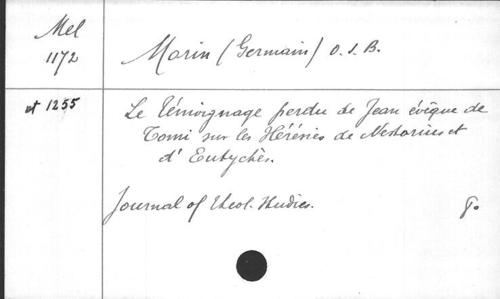 Mel
1172
Morin (Germain) O. S. B.
et 1255
Le témoignage perdu de Jean évêque de
Tomi sur les Hérésies de Nestorius et
d'Eutychès.
Journal of theol. Studies.
8°